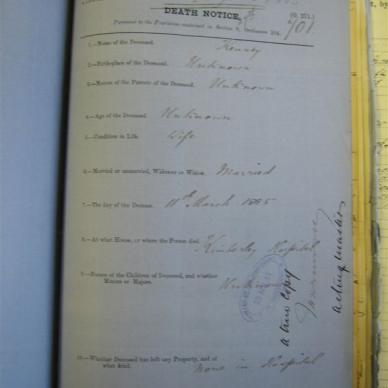 DEATH NOTICE,
Pursuant to the Provisions contained in Section 9, Ordinance 104.
/01
1.—Name of the Deceased.
2.—Birthplace of the Deceased. Unknown
3.—Names of the Parents of the Deceased. Unknown
4.—Age of the Deceased Unknown
5.—Condition in Life. Wife
6.—Married or unmarried, Widower or Widow. Married
7.—The day of the Decease. 11th March 1885
8.—At what House, or where the Person died. Kimberley Hospital
9.—Names of the Children of Deceased, and whether
Minors or Majors. Unknown
a true copy
acting master
10.—Whether Deceased has left any Property, and of
what kind. None in Hospital